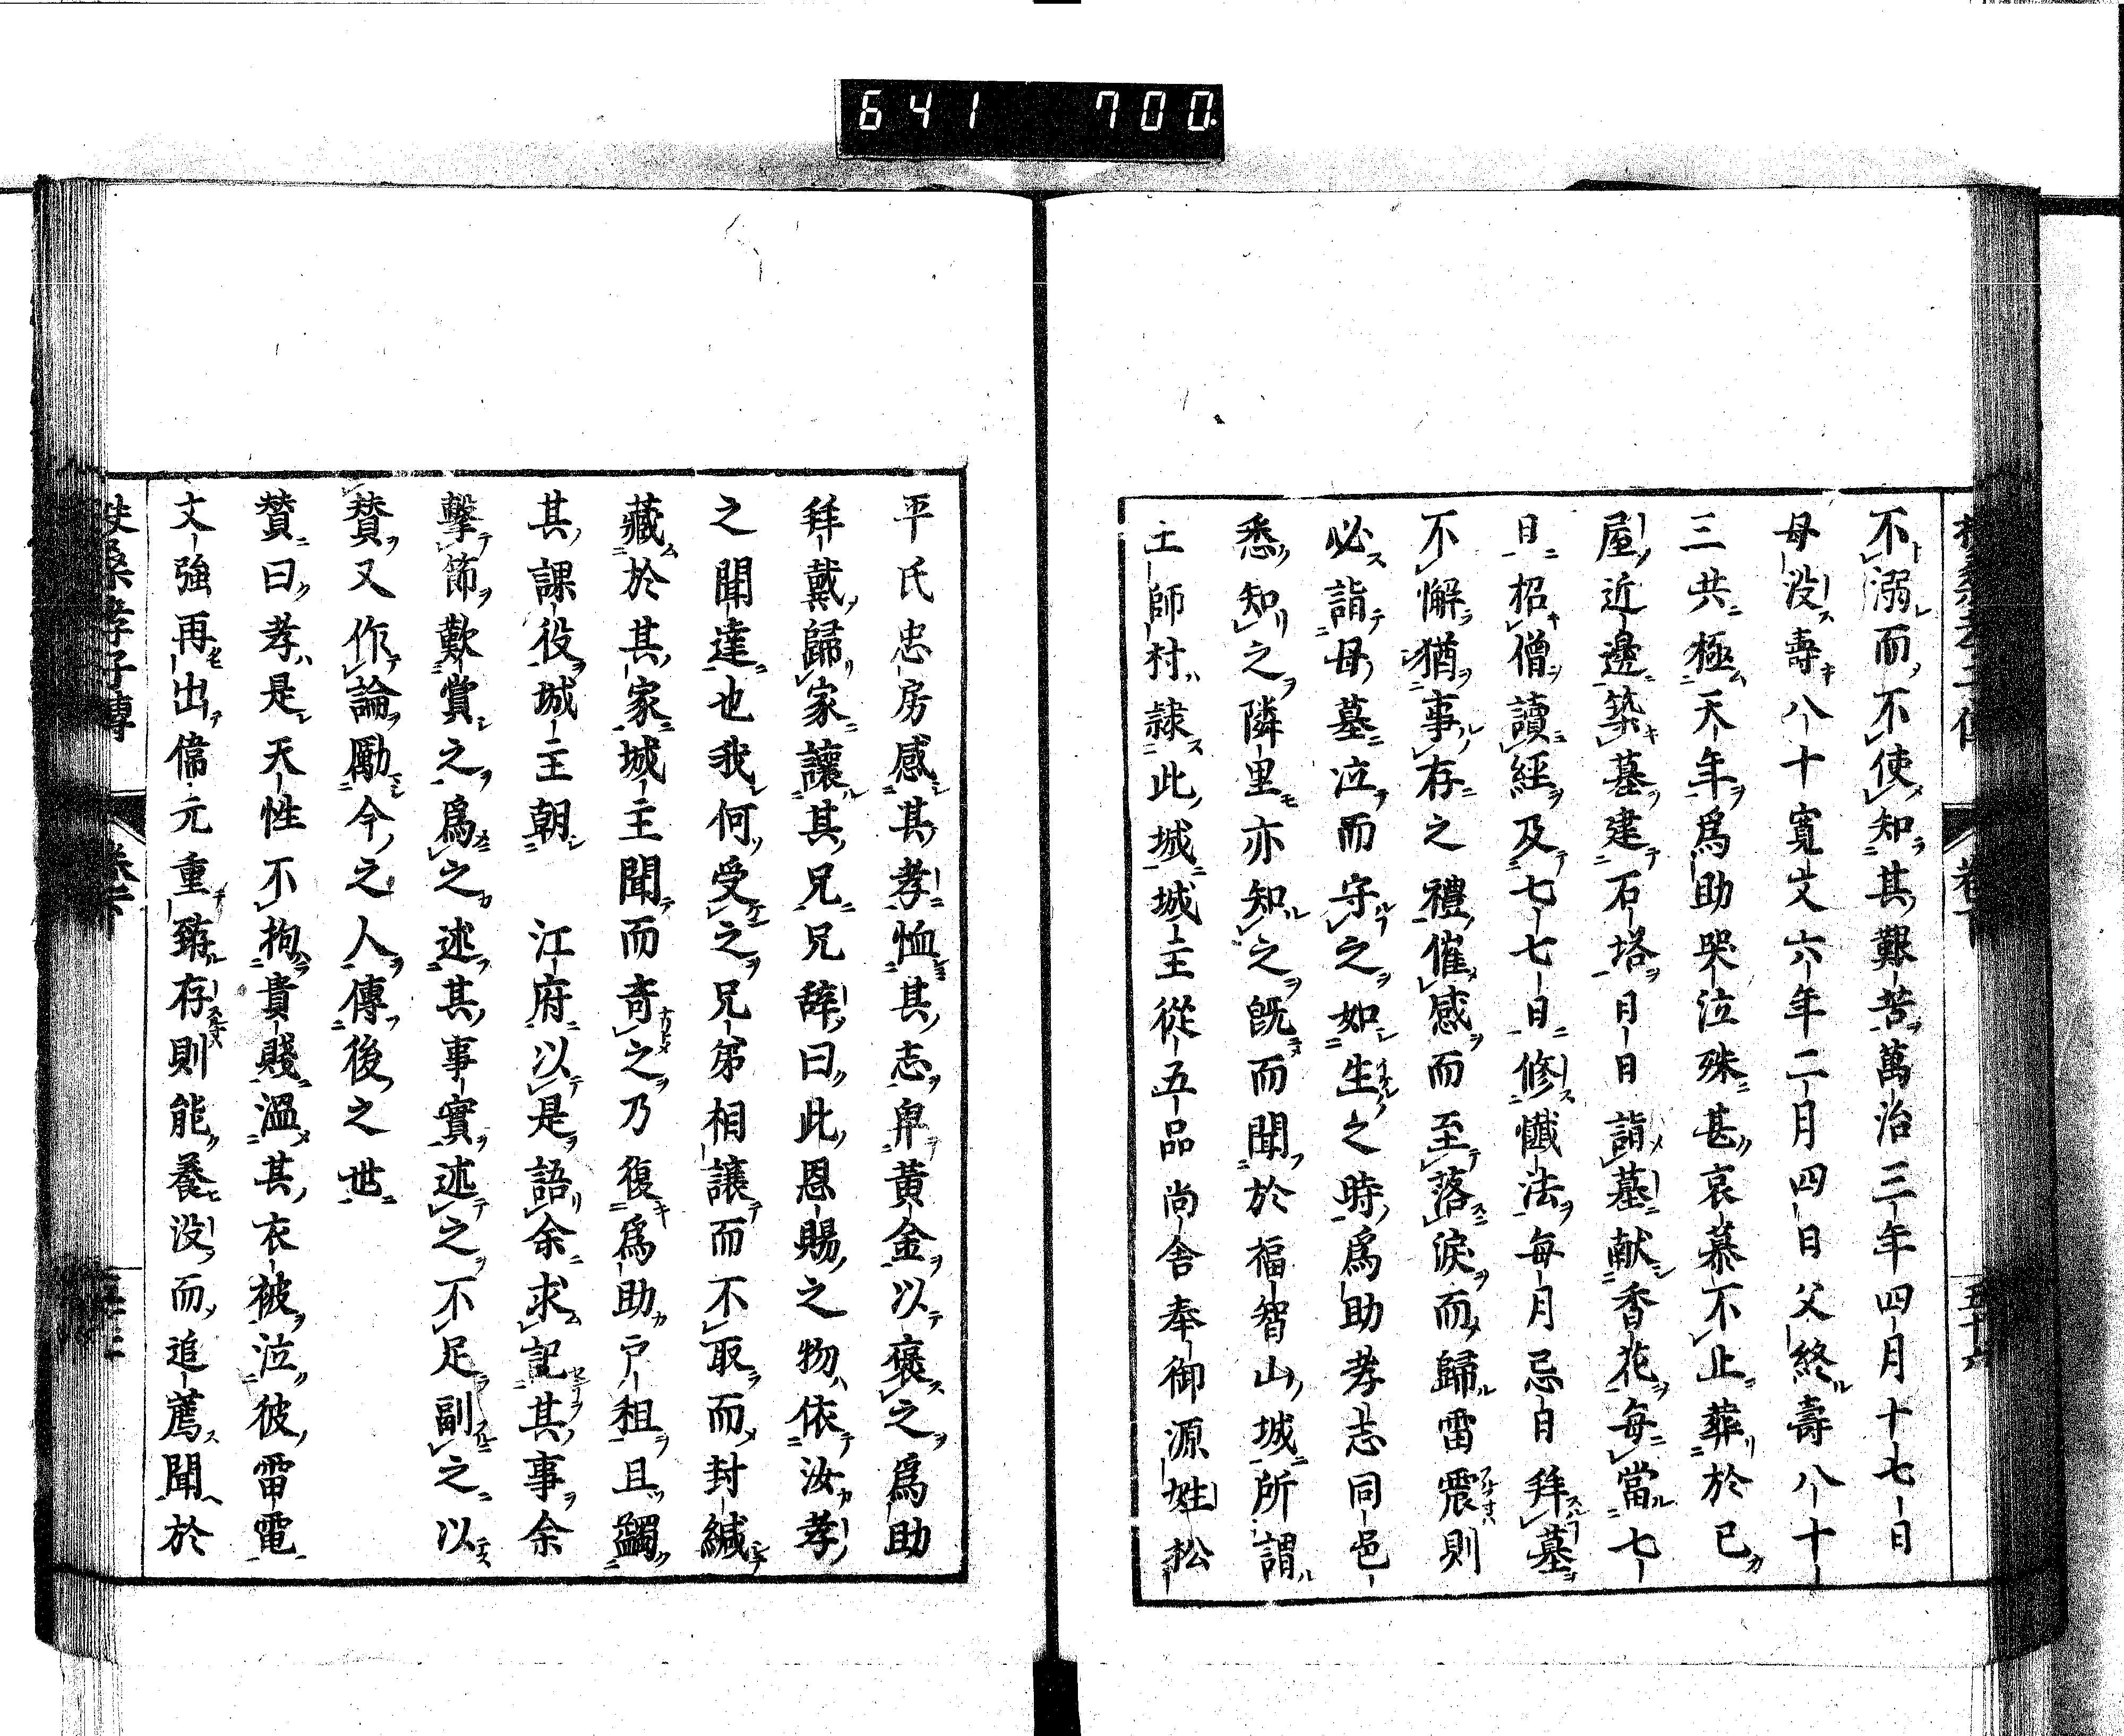 641 700.
不溺而不使知其艱苦萬治三年四月十七日
母没壽八十寛文六年二月四日父終壽八十
三共極天年爲助哭泣殊甚哀慕不止葬於已
屋近邊築墓建石塔日日詣墓献香花毎當七
日招僧讀經及七七日修懺法毎月忌日拜墓
不懈猶事存之禮催感而至落淚而歸雷震則
必詣母墓泣而守之如生之時爲助孝志同邑
悉知之隣里亦知之既而聞於福智山城所謂
土師村隷此城城主從五品尚舍奉御源姓松
平氏忠房感其孝恤其志卑黄金以褒之爲助
拜戴歸家讓其兄兄辞曰此恩賜之物依汝孝
之聞達也我何受之兄弟相讓而不取而封緘
藏於其家城主聞而奇之乃復爲助戸租且蠲
其課役城主朝 江府以是語余求記其事余
擊節歎賞之爲之述其事實述之不足副之以
賛又作論勵今之人傳後之世
賛曰孝是天性不拘貴賤溫其衣被泣彼雷電
文強再出偉元重臻存則能養没而追薦聞於
扶桑孝子傳 卷下